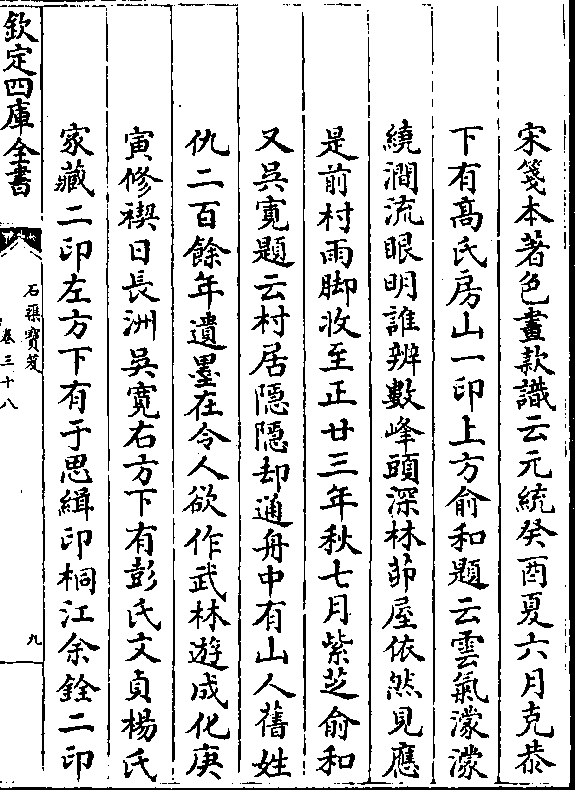 宋箋本著色畫款識云元統癸酉夏六月克恭
下有髙氏房山一印上方俞和題云雲氣濛濛
繞澗流眼明誰辨數峰頭深林茆屋依然見應
是前村雨脚收至正廿三年秋七月紫芝俞和
又吳寬題云村居隠隠却通舟中有山人舊姓
仇二百餘年遺墨在令人欲作武林遊成化庚
寅修禊日長洲吳寛右方下有彭氏文貞楊氏
家藏二印左方下有于思緝印桐江余銓二印
欽定四庫全書
石渠寶笈
卷三十八
九